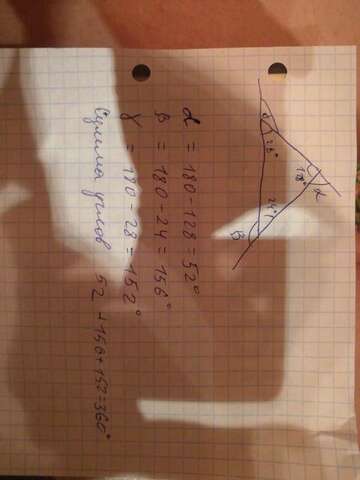 γ 28°
128° α
24°
β
α = 180 - 128 = 52°
β = 180 - 24 = 156°
γ = 180 - 28 = 152°
Сумма углов 52 + 156 + 152 = 360°